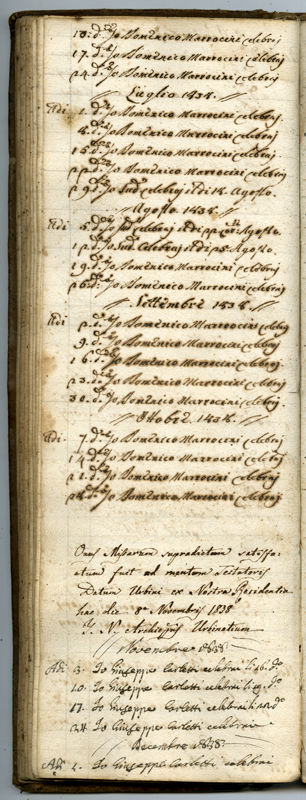 10. d.º Io Domenico Marrocini celebraj
17. d.º Io Domenico Marrocini celebraj
24. d.º Io Domenico Marrocini celebraj
Luglio 1838.
Adi 1. d.º Io Domenico Marrocini celebraj.
8. d.º Io Domenico Marrocini celebraj
15. d.º Io Domenico Marrocini celebraj.
22. d.º Io Domenico Marrocini celebraj
29. Io Sud.º celebraj il di 14. Agosto.
Agosto 1838.
Adi 5. d.º Io Sud.º celebraj il di Agosto.
12. d.º Io Sud.º Celebraj il di 25. Agosto.
19. d.º Io Domenico Marrocini celebraj.
26. d.º Io Domenico Marrocini celebraj
Settembre 1838.
Adi 2. d.º Io Domenico Marrocini celebraj
9. d.º Io Domenico Marrocini celebraj
16. d.º Io Domenico Marrocini celebraj.
23. d.º Io Domenico Marrocini celebraj.
30. d.º Io Domenico Marrocini celebraj.
Ottobre 1838.
Adi. 7. d.º Io Domenico Marrocini celebraj
14. d.º Io Domenico Marrocini celebraj
21. d.º Io Domenico Marrocini celebraj
28. d.º Io Domenico Marrocini celebraj
Onus Missarum supradictum satisfa-
ctum fuit ad mentem Testatoris
Datum Urbini ex Nostra Residentia
hac die 8ª Novembris 1838
I. N. Archiepus Urbinatium
Novembre 1838
Adi 3. Io Giuseppe Carletti celebrai li 16. do
10. Io Giuseppe Carletti celebrai li 19. do
17. Io Giuseppe Carletti celebrai li do
24. Io Giuseppe Carletti celebrai
Decembre 1838
Adi 1. Io Giuseppe Carletti celebrai